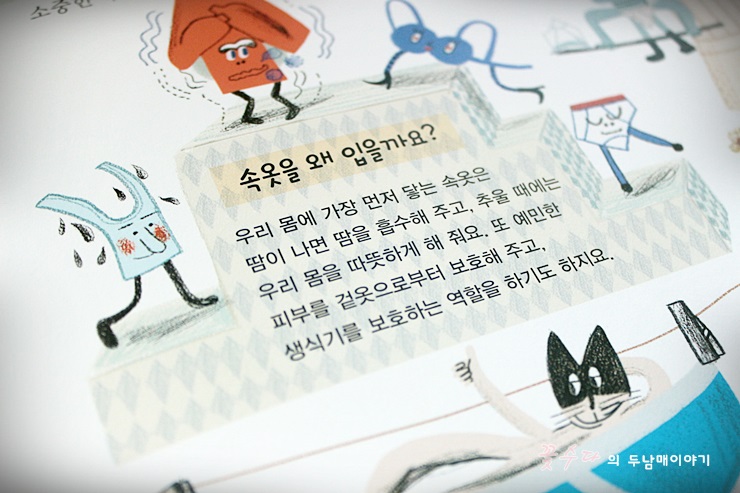 소중한
속옷을 왜 입을까요?
우리 몸에 가장 먼저 닿는 속옷은
땀이 나면 땀을 흡수해 주고, 추울 때에는
우리 몸을 따뜻하게 해 줘요. 또 예민한
피부를 겉옷으로부터 보호해 주고,
생식기를 보호하는 역할을 하기도 하지요.
의 두남매이야기